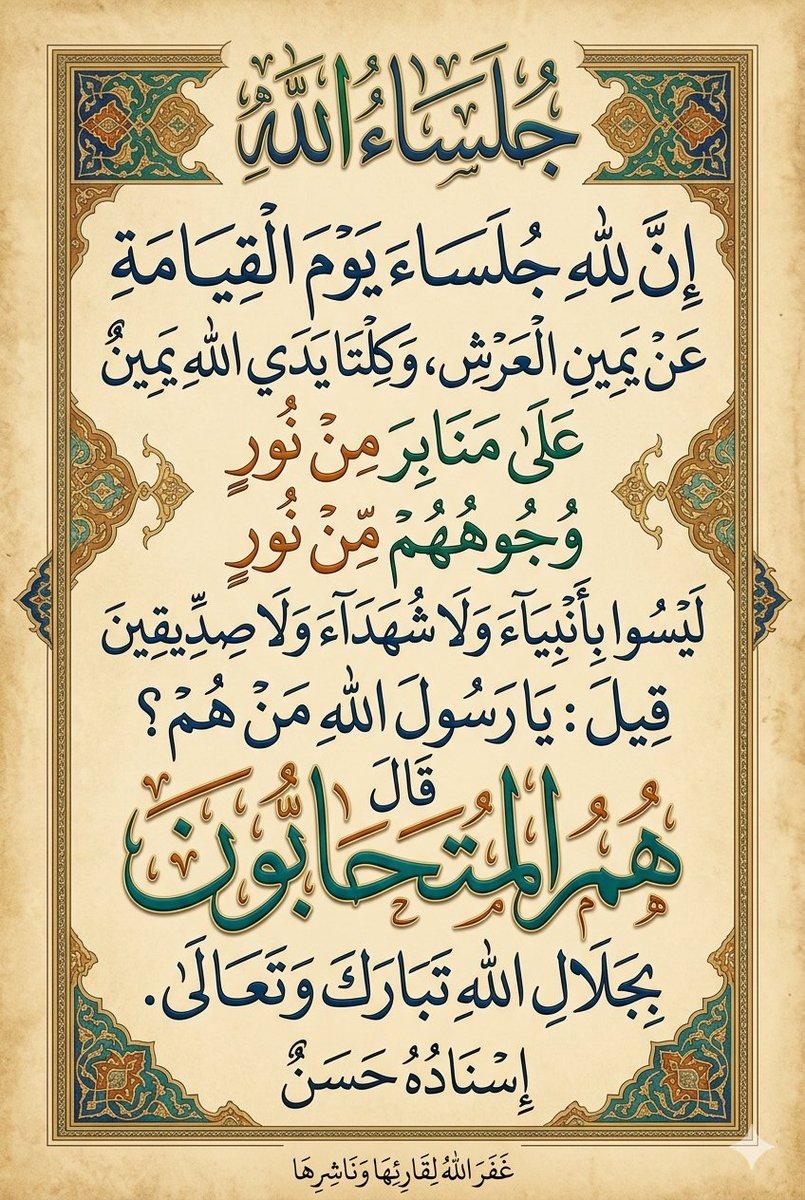 جُلَسَاءُ اللَّهِ
إِنَّ لِلَّهِ جُلَسَاءَ يَوْمَ الْقِيَامَةِ
عَنْ يَمِينِ الْعَرْشِ، وَكِلْتَا يَدَيِ اللَّهِ يَمِينٌ
عَلَى مَنَابِرَ مِنْ نُورٍ
وُجُوهُهُمْ مِّنْ نُورٍ
لَيْسُوا بِأَنْبِيَآءَ وَلَا شُهَدَآءَ وَلَا صِدِّيقِينَ
قِيلَ: يَا رَسُولَ اللَّهِ مَنْ هُمْ؟
قَالَ
هُمُ الْمُتَحَابُّونَ
بِجَلَالِ اللَّهِ تَبَارَكَ وَتَعَالَى.
إِسْنَادُهُ حَسَنٌ
غَفَرَ اللَّهُ لِقَارِئِهَا وَنَاشِرِهَا